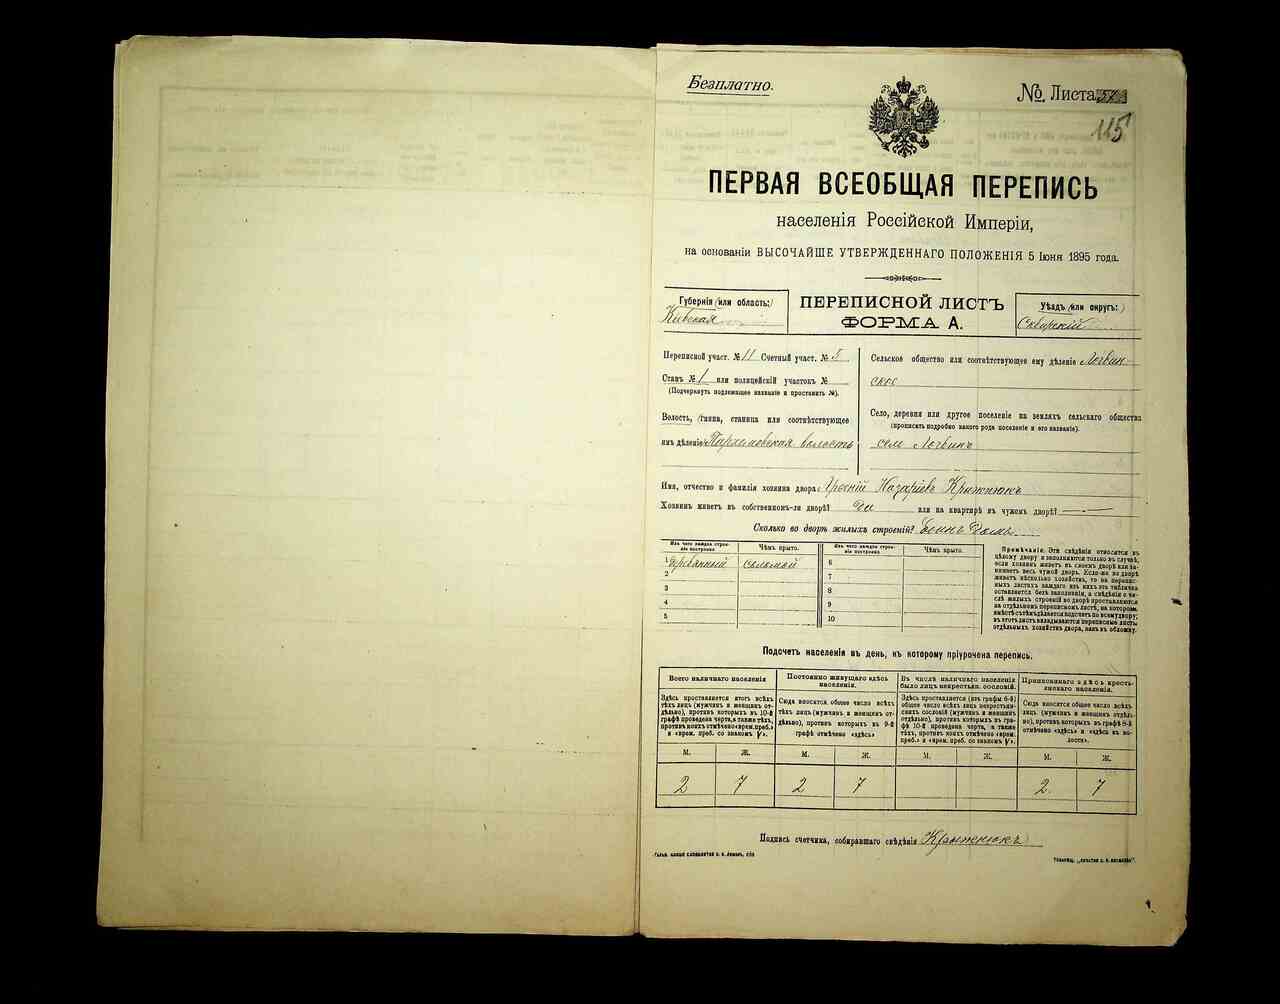 Безплатно.
№ Листа
115
ПЕРВАЯ ВСЕОБЩАЯ ПЕРЕПИСЬ
населенія Россійской Имперіи,
на основаніи ВЫСОЧАЙШЕ УТВЕРЖДЕННАГО ПОЛОЖЕНІЯ 5 Іюня 1895 года.
Губернія (или область:)
Кіевская
ПЕРЕПИСНОЙ ЛИСТЪ
ФОРМА А.
Уѣздъ (или округъ:)
Сквирскій
Переписной участ. № 11 Счетный участ. № 5
Станъ № 1 или полицейскій участокъ №
(Подчеркнуть подлежащее названіе и проставить №).
Волость, (гмина, станица или соотвѣтствующее
имъ дѣленіе) Пархомовская волость
Сельское общество или соотвѣтствующее ему дѣленіе Логвин-
ское
Село, деревня или другое поселеніе на земляхъ сельскаго общества
(прописать подробно какого рода поселеніе и его названіе).
село Логвинъ
Имя, отчество и фамилія хозяина двора: Назаріевъ Крижнюкъ
Хозяинъ живетъ въ собственномъ-ли дворѣ? Да или на квартирѣ въ чужомъ дворѣ? —
Сколько во дворѣ жилыхъ строеній? Единъ Домъ
Изъ чего каждое строеніе построено. Чѣмъ крыто. Изъ чего каждое строеніе построено. Чѣмъ крыто.
соломой 6
2 7
3 8
4 9
5 10
Примѣчаніе. Эти свѣдѣнія относятся къ
цѣлому двору и заполняются только въ случаѣ,
если хозяинъ живетъ въ своемъ дворѣ или за-
нимаетъ весь чужой дворъ. Если-же во дворѣ
живетъ нѣсколько хозяйствъ, то на перепис-
ныхъ листахъ каждаго изъ нихъ эта табличка
оставляется безъ заполненія, а свѣдѣнія о чи-
слѣ жилыхъ строеній во дворѣ проставляются
на отдѣльномъ переписномъ листѣ, на которомъ
вмѣстѣ съ тѣмъ дѣлается подсчетъ по всему двору;
въ этотъ листъ вкладываются переписные листы
отдѣльныхъ хозяйствъ двора, какъ въ обложку.
Подсчетъ населенія въ день, къ которому пріурочена перепись.
Всего наличнаго населенія
Здѣсь проставляется итогъ всѣхъ
тѣхъ лицъ (мужчинъ и женщинъ от-
дѣльно), противъ которыхъ въ 10-й
графѣ проведена черта, а также тѣхъ,
противъ коихъ отмѣчено «врем. преб.»
и «врем. преб. со знакомъ V».
Постоянно живущаго здѣсь
населенія.
Сюда вносится общее число всѣхъ
лицъ (мужчинъ и женщинъ отдѣль-
но), противъ которыхъ въ 9-й
графѣ отмѣчено «здѣсь»
Въ числѣ наличнаго населенія
было лицъ некрестьян. сословій.
Здѣсь проставляется (изъ графы 6-й)
общее число всѣхъ лицъ некрестьян-
скихъ сословій (мужчинъ и женщинъ
отдѣльно), противъ которыхъ въ гра-
фѣ 10-й проведена черта, а также
тѣхъ, противъ коихъ отмѣчено «врем.
преб.» и «врем. преб. со знакомъ V».
Приписаннаго здѣсь кресть-
янскаго населенія.
Сюда вносится общее число всѣхъ
лицъ (мужчинъ и женщинъ отдѣль-
но), противъ которыхъ въ графѣ 8-й
отмѣчено «здѣсь» и «здѣсь въ во-
лости».
М. Ж. М. Ж. М. Ж. М. Ж.
2 7 2 7 2 7
Подпись счетчика, собиравшаго свѣдѣнія Крижнюкъ